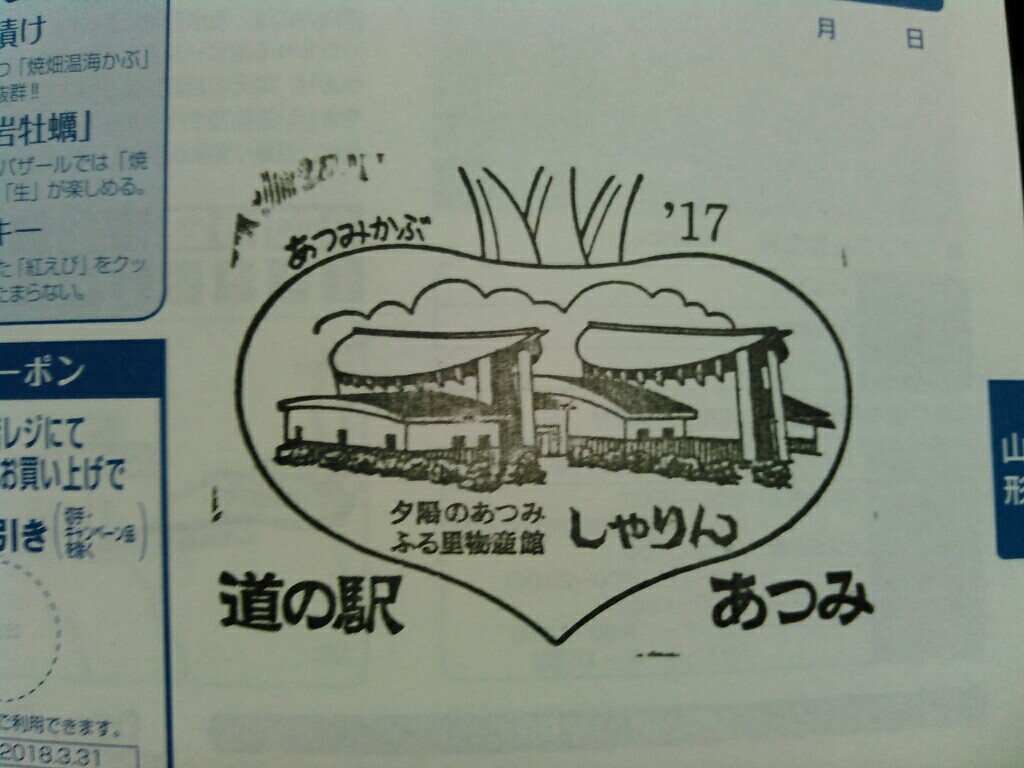 漬け
つ「焼畑温海かぶ」
抜群!!
岩牡蠣」
バザールでは「焼
「生」が楽しめる。
キー
た「紅えび」をクッ
たまらない。
ーポン
レジにて
お買い上げで
引き
を除く
ご利用できます。
2018.3.31
月 日
'17
あつみかぶ
夕陽のあつみ
ふる里物産館
しゃりん
道の駅 あつみ
山形